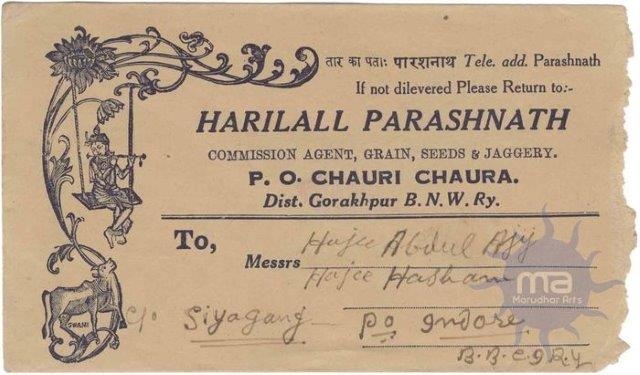 तार का पता: पारशनाथ Tele. add. Parashnath
If not dilevered Please Return to:-
HARILALL PARASHNATH
COMMISSION AGENT, GRAIN, SEEDS & JAGGERY.
P. O. CHAURI CHAURA.
Dist. Gorakhpur B. N. W. Ry.
To,
Messrs
Hajee Abdul Ajij
Hajee Hasham
c/o Siyagang PO Indore
B.B.C.I R.y
SWAMI
ma
Marudhar Arts